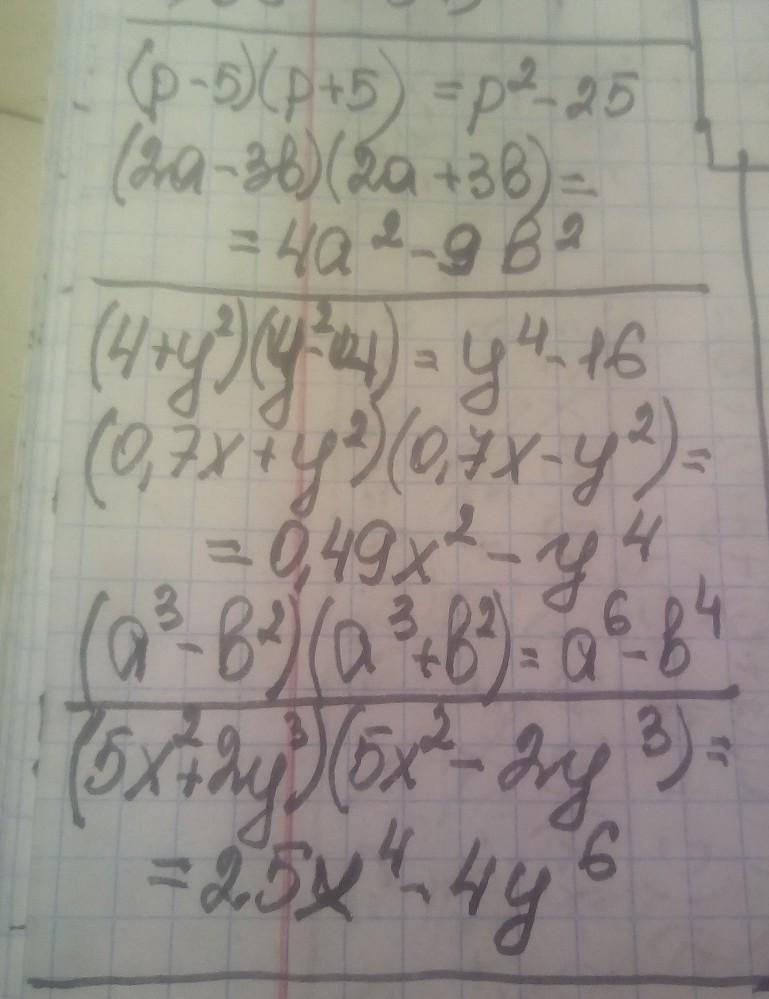 (p-5)(p+5) = p² - 25
(2a-3b)(2a+3b)=
= 4a² - 9b²
(4+y²)(y²-4) = y⁴ - 16
(0,7x+y²)(0,7x-y²)=
= 0,49x² - y⁴
(a³-b²)(a³+b²) = a⁶-b⁴
(5x²+2y³)(5x²-2y³)=
= 25x⁴ - 4y⁶